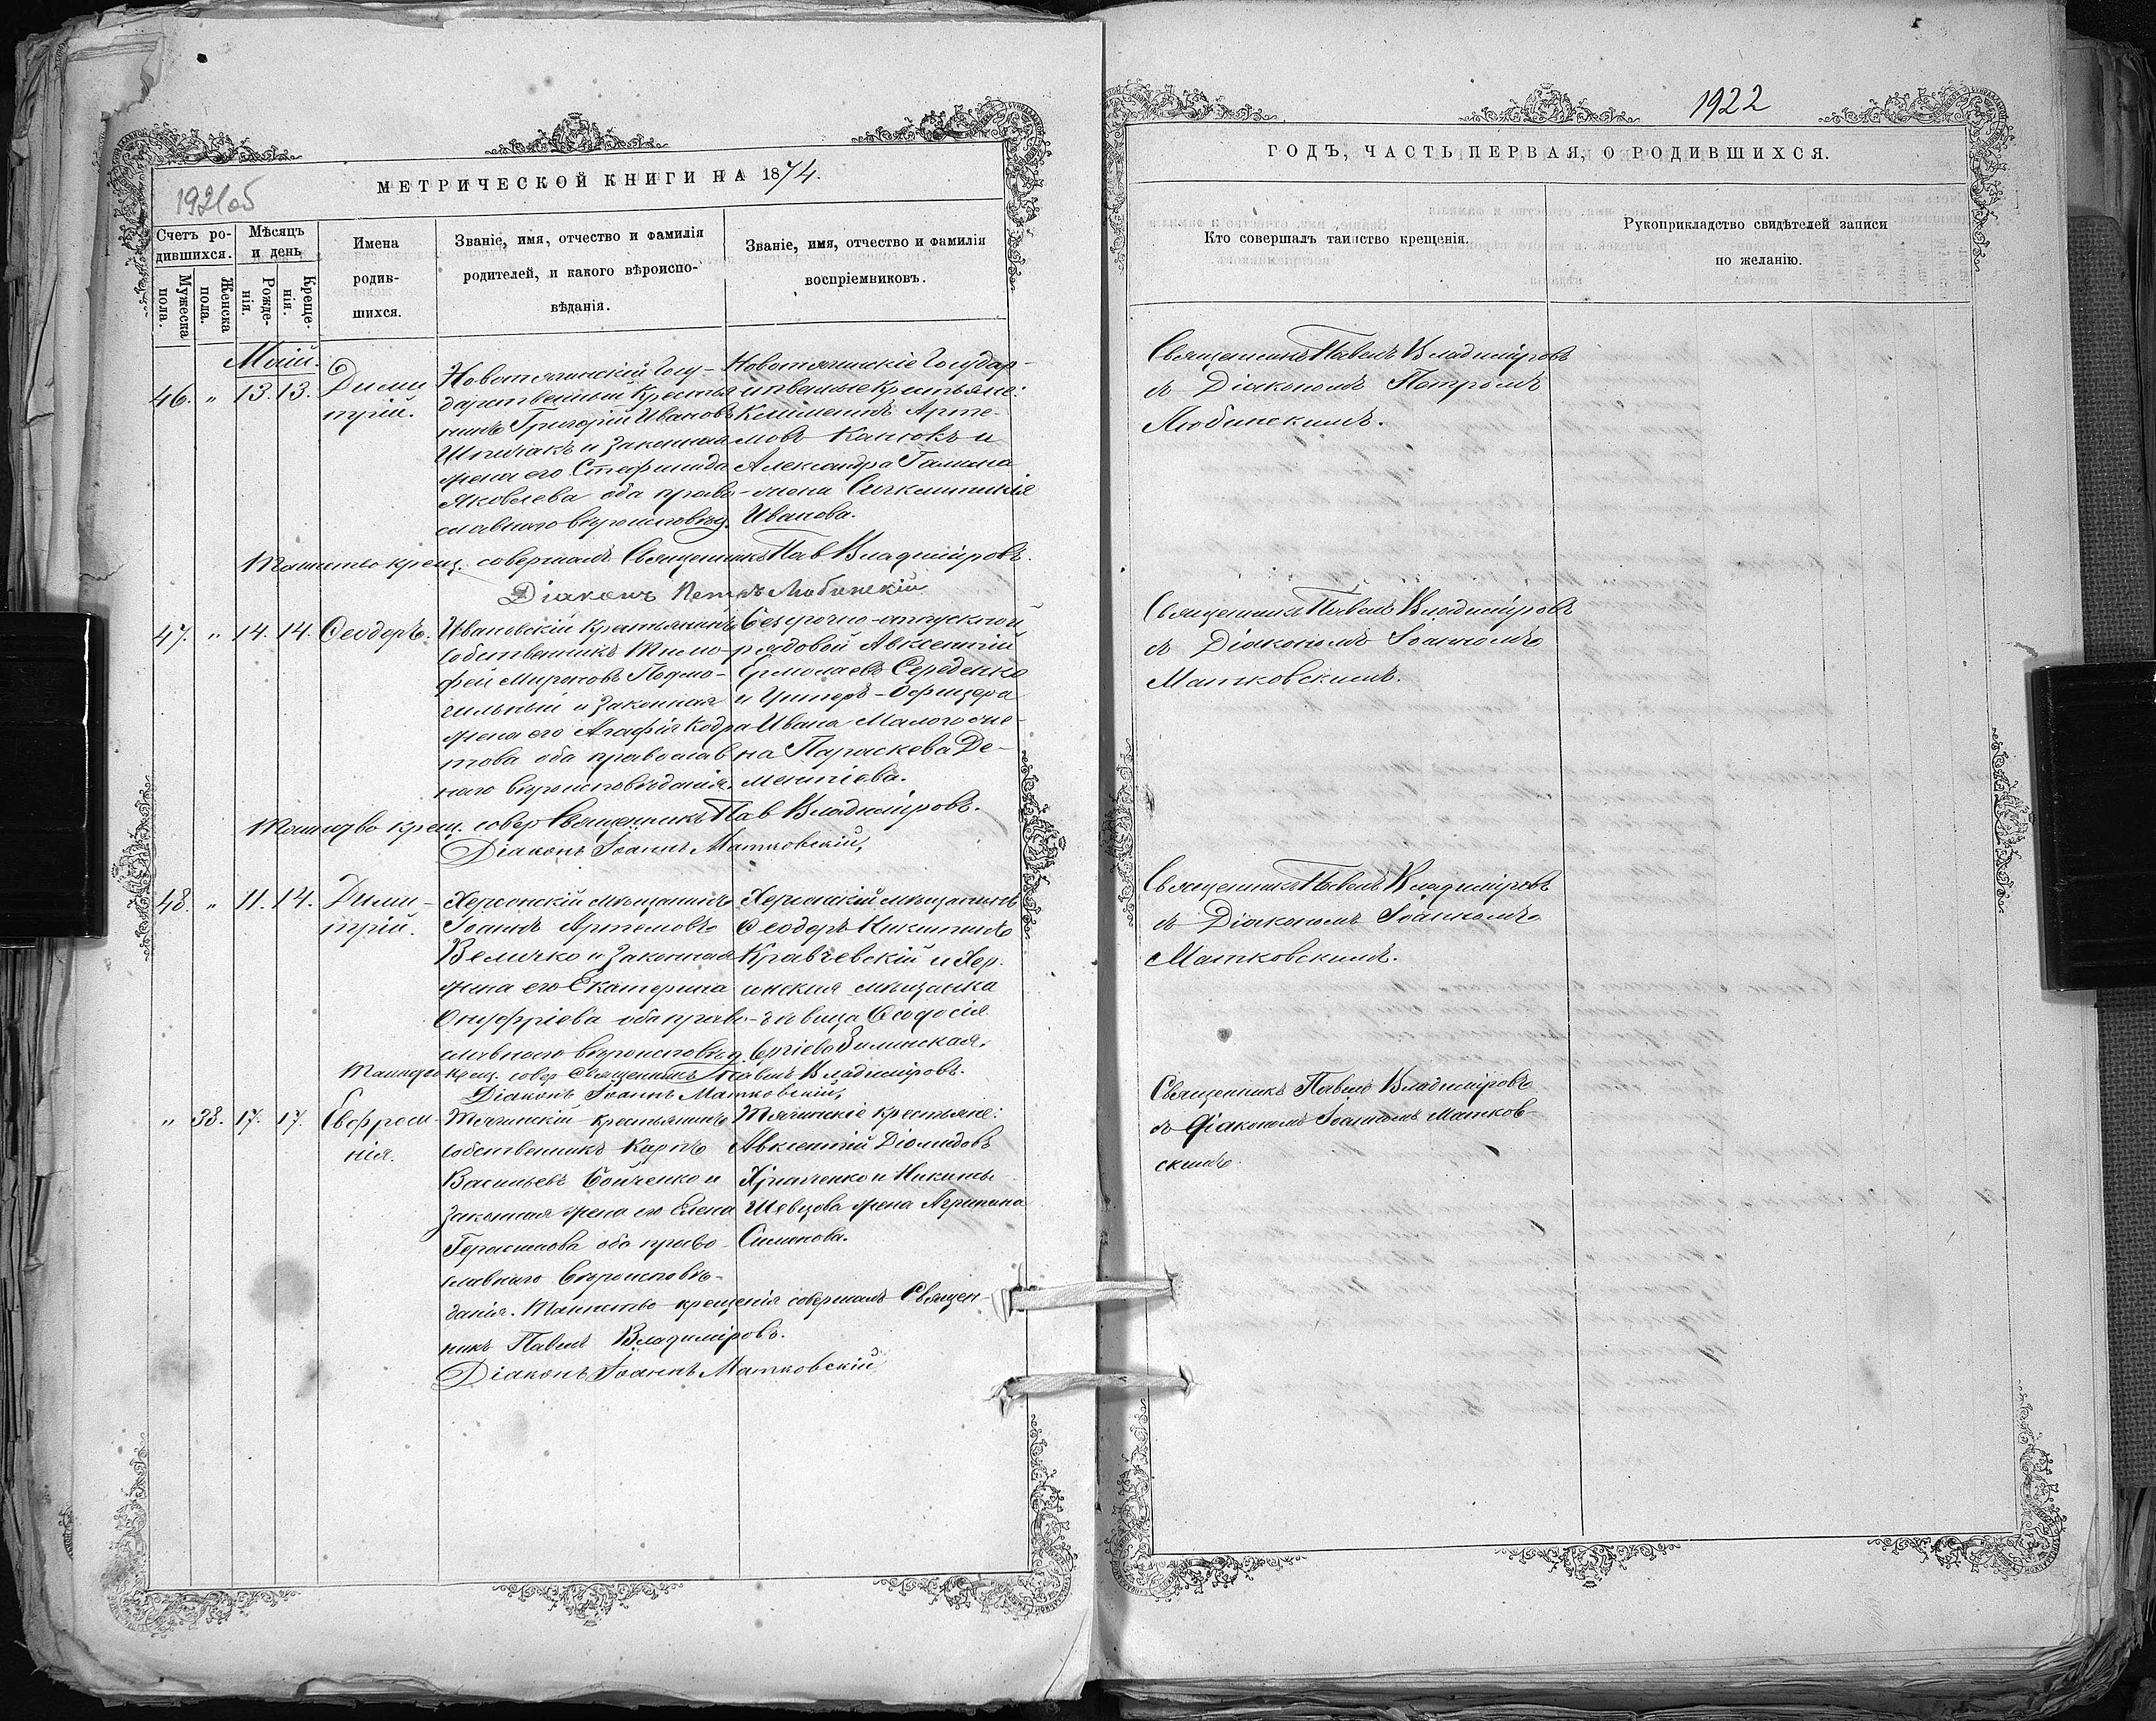 1921об
МЕТРИЧЕСКОЙ КНИГИ НА 1874.
Счетъ ро-
дившихся.
Мужеска
пола.
Женска
пола.
Мѣсяцъ
и день
Рожде-
нія.
Креще-
нія.
Имена
родив-
шихся.
Званіе, имя, отчество и фамилія
родителей, и какого вѣроиспо-
вѣданія.
Званіе, имя, отчество и фамилія
воспріемниковъ.
Маій.
46. " 13. 13. Дими
трій.
Новотягинскій Госу-
дарственный Крестья
нинъ Григорій Ивановъ
и Законная
жена его Стефанида
Яковлева оба право-
славнаго вѣроисповѣд.
Новотягинскіе Государ-
ственные Крестьяне:
Климентъ Арте-
мовъ и
Александра
жена
Иванова.
Таинство крещ. совершалъ Священникъ Пав Владиміровъ.
Діаконъ Петръ Любинскій
47. " 14. 14. Ѳеодоръ.
Ивановскій Крестьянинъ
собственникъ Тимо-
фей и Законная
жена его Агафія Кодра
това оба православ
наго вѣроисповѣданія.
Безсрочно-отпускной
рядовой Авксентій
Ермолаевъ Середенко
и Унтеръ-Офицера
Ивана Малого же-
на Параскева Де-
ментіева.
Таинство крещ. совер Священникъ Пав Владиміровъ.
Діаконъ Іоаннъ Матковскій,
48. " 11. 14. Дими-
трій.
Херсонскій мѣщанинъ
Іоаннъ Артемовъ
Величко и Законная
жена его Екатерина
Онуфріева оба право-
славнаго вѣроисповѣд.
Херсонскій мѣщанинъ
Ѳеодоръ Никитинъ
Кравчевскій и Хер.
сонская мѣщанка
дѣвица Ѳеодосія
Таинство Крещ. совер Священникъ Павелъ Владиміровъ.
Діаконъ Іоаннъ Матковскій,
" 38. 17. 17. Евфроси-
нія.
Тягинскій Крестьянинъ
собственникъ Карпъ
Васильевъ Бойченко и
Законная жена его Елена
Герасимова оба право-
славнаго Вѣроисповѣ-
данія. Таинство крещенія совершалъ Священ-
никъ Павелъ Владиміровъ.
Діаконъ Іоаннъ Матковскій
Тягинскіе крестьяне:
Авксентій Діомидовъ
Харченко и Никиты
Шевцова жена Агрипина
Симонова.
1922
ГОДЪ, ЧАСТЬ ПЕРВАЯ, О РОДИВШИХСЯ.
Кто совершалъ таинство крещенія.
Рукоприкладство свидѣтелей записи
по желанію.
Священникъ Павелъ Владиміровъ
съ Діакономъ Петромъ
Любинскимъ.
Священникъ Павелъ Владиміровъ
съ Діакономъ Іоанномъ
Матковскимъ.
Священникъ Павелъ Владиміровъ
съ Діакономъ Іоанномъ
Матковскимъ.
Священникъ Павелъ Владиміровъ
съ Діакономъ Іоанномъ Матков-
скимъ.